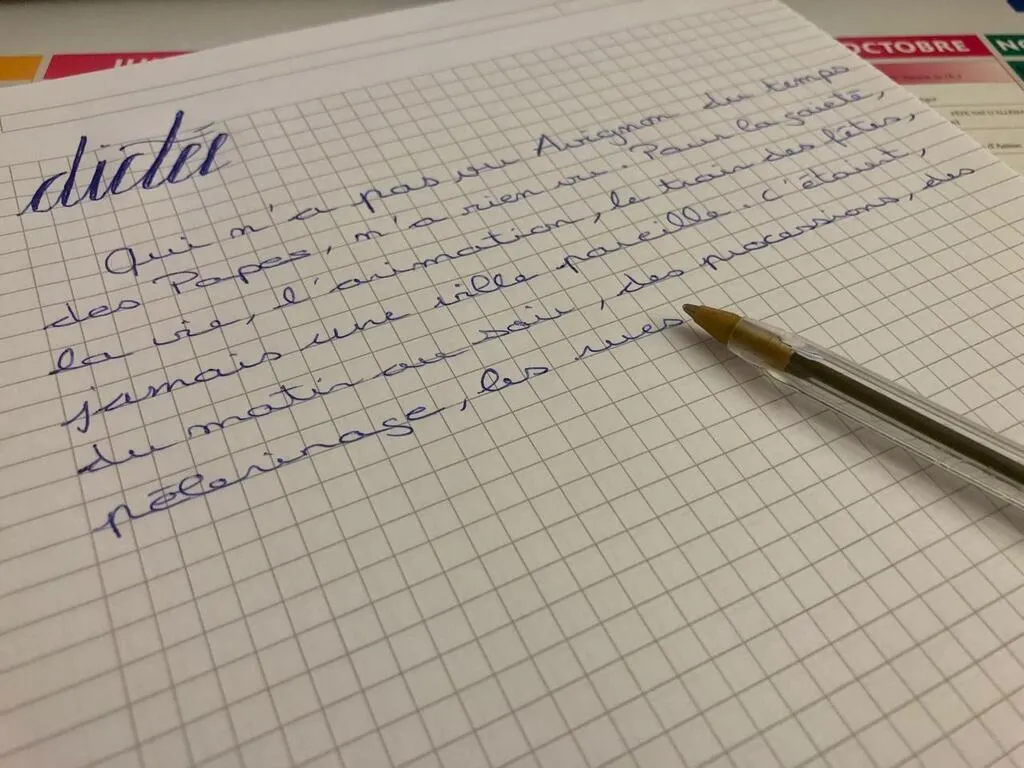 OCTOBRE
dictée
Qui n'a pas vu Avignon du temps
des Papes, n'a rien vu. Pour la gaieté,
la vie, l'animation, le train des fêtes,
jamais une ville pareille. C'était,
du matin au soir, des processions, des
pèlerinage, les rues